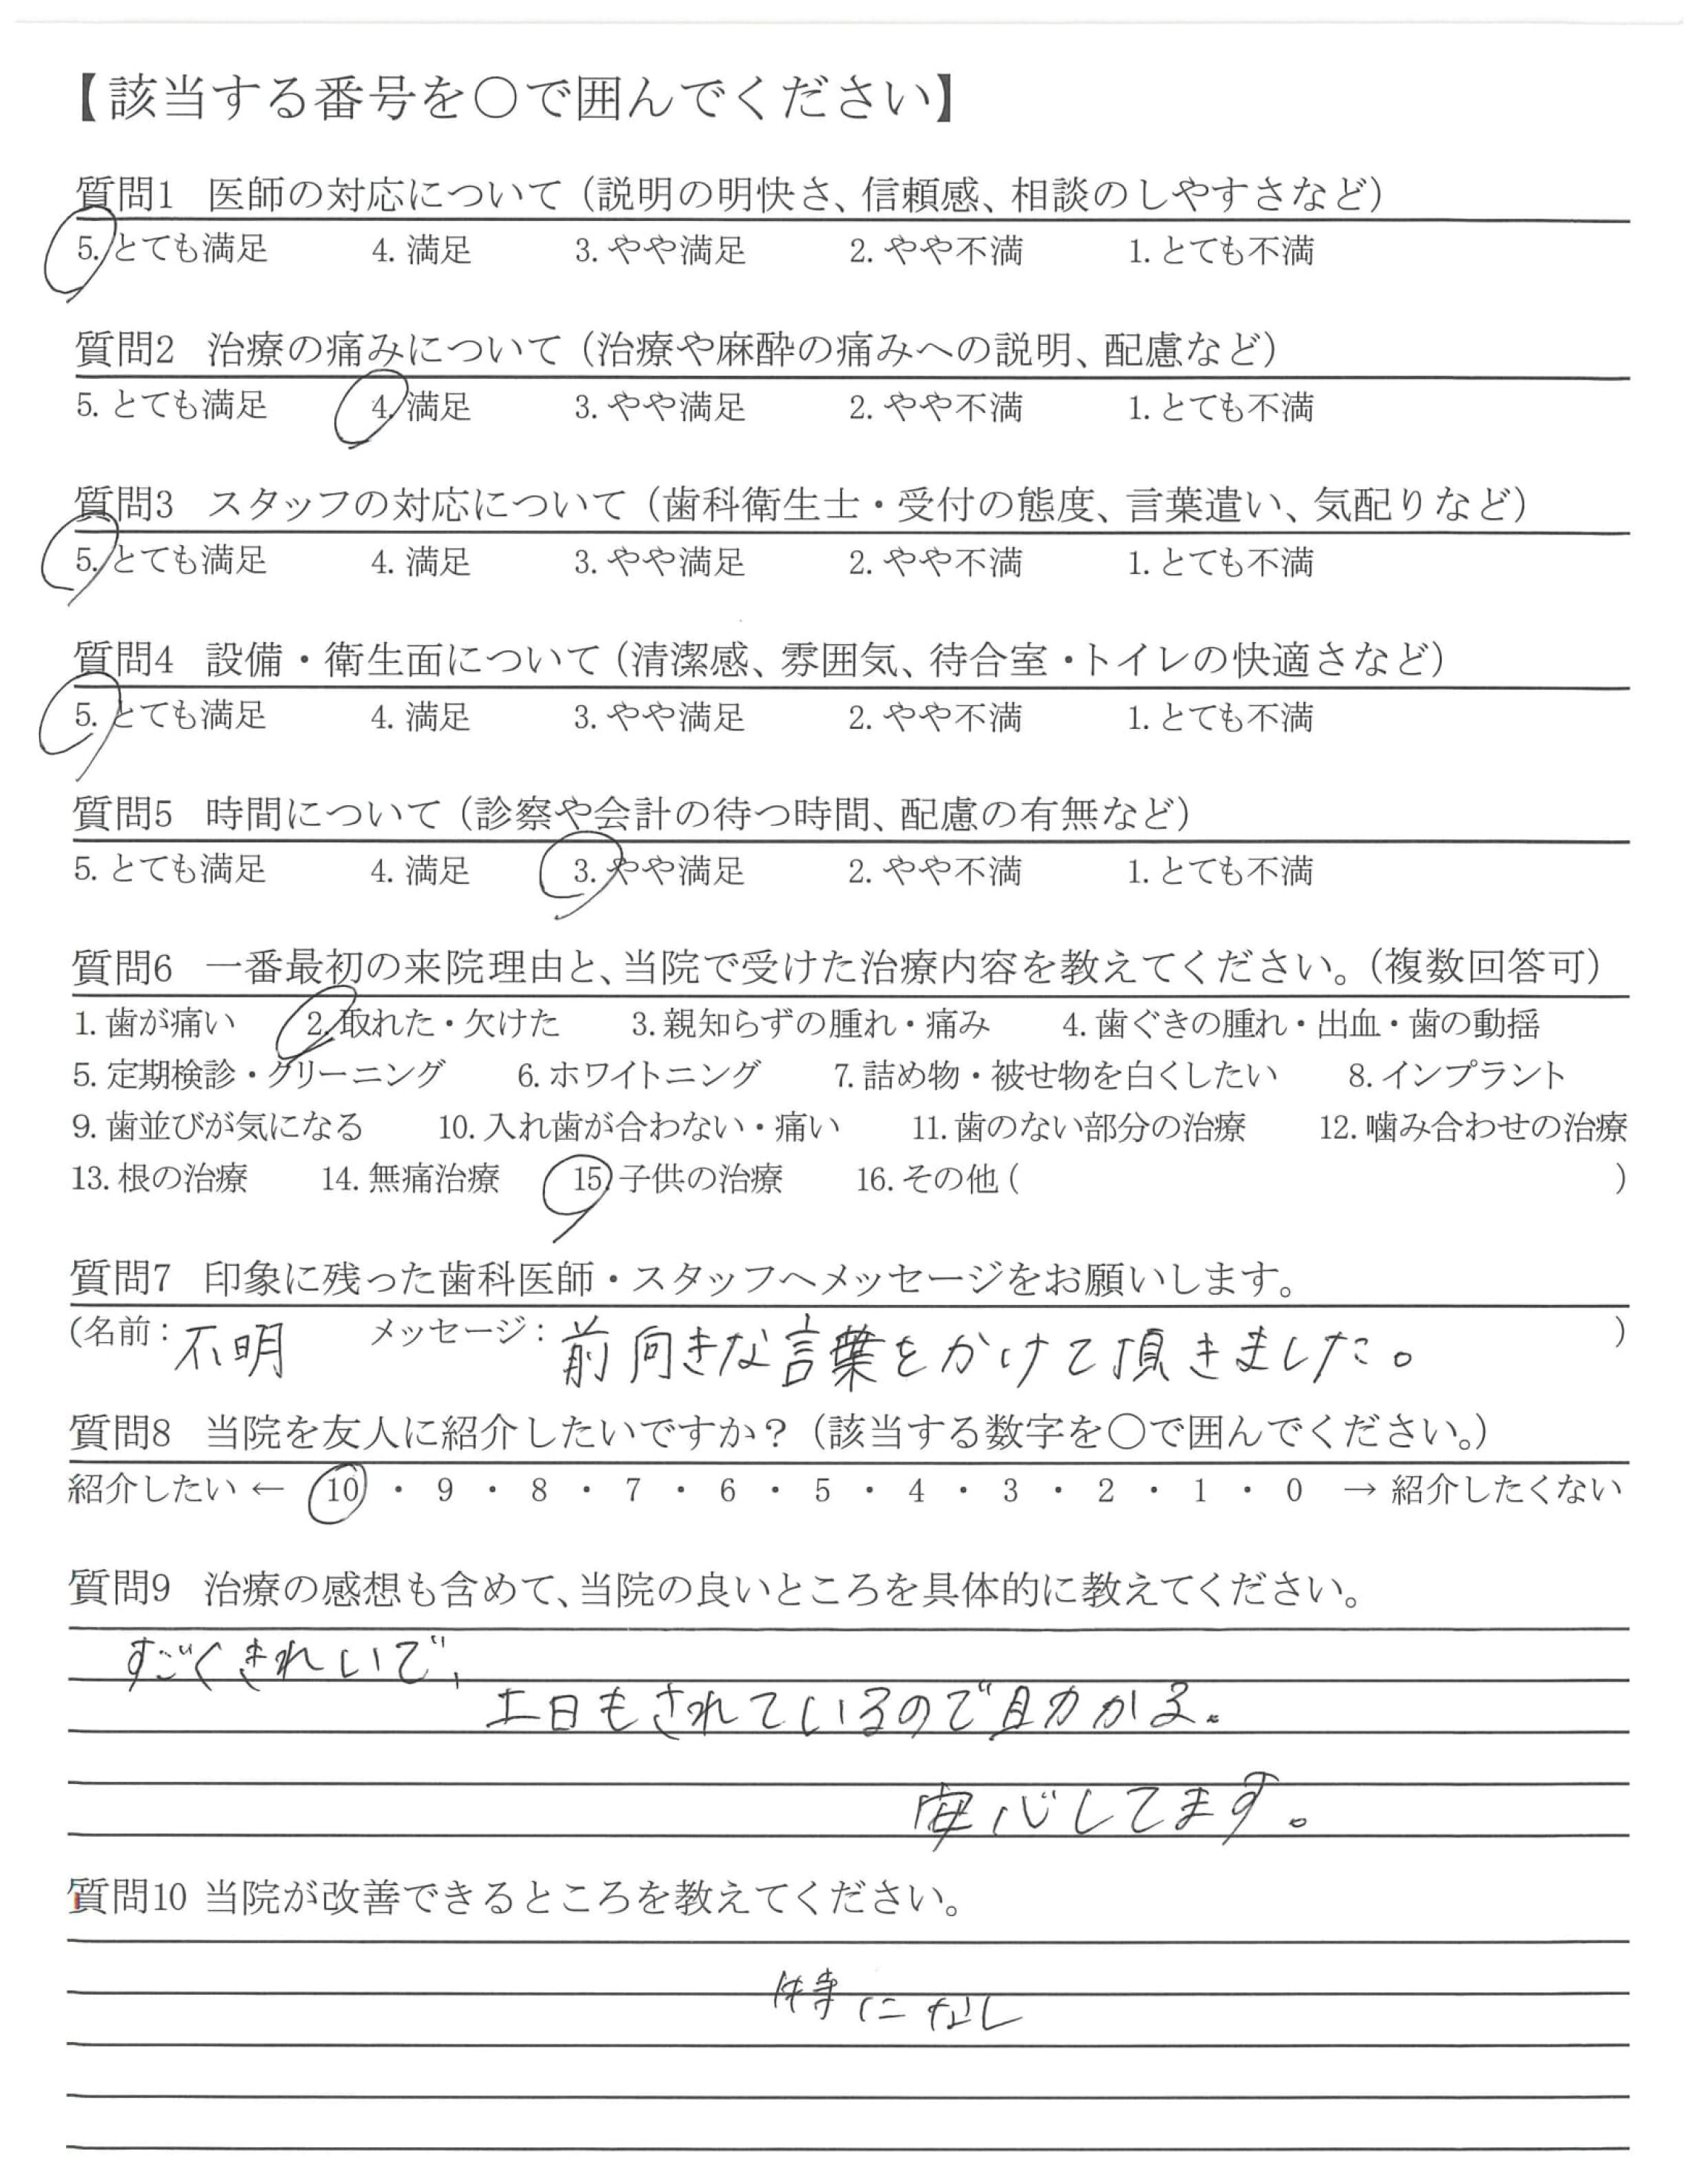 【該当する番号を○で囲んでください】
質問1 医師の対応について（説明の明快さ、信頼感、相談のしやすさなど）
5. とても満足 4. 満足 3. やや満足 2. やや不満 1. とても不満
質問2 治療の痛みについて（治療や麻酔の痛みへの説明、配慮など）
5. とても満足 4. 満足 3. やや満足 2. やや不満 1. とても不満
質問3 スタッフの対応について（歯科衛生士・受付の態度、言葉遣い、気配りなど）
5. とても満足 4. 満足 3. やや満足 2. やや不満 1. とても不満
質問4 設備・衛生面について（清潔感、雰囲気、待合室・トイレの快適さなど）
5. とても満足 4. 満足 3. やや満足 2. やや不満 1. とても不満
質問5 時間について（診察や会計の待つ時間、配慮の有無など）
5. とても満足 4. 満足 3. やや満足 2. やや不満 1. とても不満
質問6 一番最初の来院理由と、当院で受けた治療内容を教えてください。（複数回答可）
1. 歯が痛い 2. 取れた・欠けた 3. 親知らずの腫れ・痛み 4. 歯ぐきの腫れ・出血・歯の動揺
5. 定期検診・クリーニング 6. ホワイトニング 7. 詰め物・被せ物を白くしたい 8. インプラント
9. 歯並びが気になる 10. 入れ歯が合わない・痛い 11. 歯のない部分の治療 12. 噛み合わせの治療
13. 根の治療 14. 無痛治療 15. 子供の治療 16. その他（ ）
質問7 印象に残った歯科医師・スタッフへメッセージをお願いします。
（名前：不明 メッセージ：前向きな言葉をかけて頂きました。 ）
質問8 当院を友人に紹介したいですか？（該当する数字を○で囲んでください。）
紹介したい ← 10 ・ 9 ・ 8 ・ 7 ・ 6 ・ 5 ・ 4 ・ 3 ・ 2 ・ 1 ・ 0 → 紹介したくない
質問9 治療の感想も含めて、当院の良いところを具体的に教えてください。
すごくきれいで、
土日もされているので助かる。
安心してます。
質問10 当院が改善できるところを教えてください。
特になし